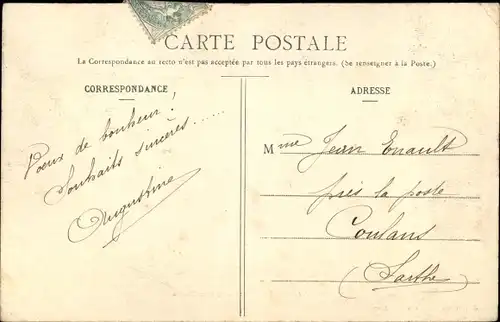 CARTE POSTALE
La Correspondance au recto n'est pas acceptée par tous les pays étrangers. (Se renseigner à la Poste.)
CORRESPONDANCE
Vœux de bonheur!
Souhaits sincères......
Augustine
ADRESSE
Mme Jean Enault
près la poste
Coulans
(Sarthe)